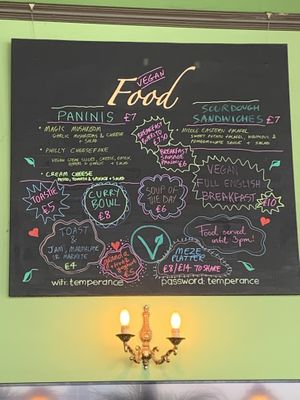 VEGAN
Food
PANINIS £7
• MAGIC MUSHROOM
GARLIC MUSHROOMS & CHEESE
+ SALAD
• PHILLY CHEESEFAKE
VEGAN STEAK SLICES, CHEESE, ONION,
+ SALAD
• CREAM CHEESE
PESTO, TOMATO & SPINACH + SALAD
BREAKFAST
BURRITO
BREAKFAST
SAUSAGE
PANINI
£6
SOURDOUGH
SANDWICHES £7
• MIDDLE EASTERN FALAFEL
SWEET POTATO FALAFEL, HOUMOUS &
POMEGRANATE SAUCE + SALAD
VEGAN
FULL ENGLISH
BREAKFAST
£10
TOASTIE
£5
CURRY
BOWL
£8
SOUP OF
THE DAY
£6
TOAST &
JAM, MARMALADE
OR MARMITE
£4
GRANOLA
£5
V
MEZE
PLATTER
£8/£14 TO SHARE
Food served
until 3pm!
wifi: temperance
password: temperance